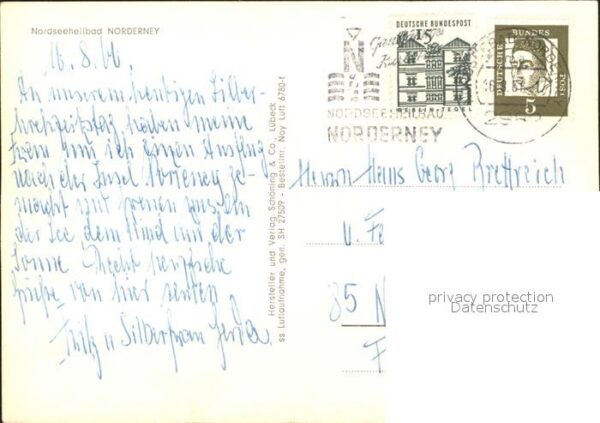 Nordseeheilbad NORDERNEY
16.8.66.
An unserem heutigen Silber-
hochzeitstag haben meine
Frau und ich einen Ausflug
nach der Insel Norderney ge-
macht und freuen uns an
der See, dem Wind und der
Sonne. Recht herzliche
Grüße von hier senden
Fritz u Silberfrau Gerda.
Hersteller und Verlag Schöning & Co., Lübeck
ss Luftaufnahme, gen. SH 27509 - Bestellnr. Noy Luft 6780-f
DEUTSCHE BUNDESPOST
15
BERLIN-TEGEL
DEUTSCHE
BUNDES
POST
5
N
NORDSEEHEILBAD
NORDERNEY
Herrn Hans Georg Brettreich
u. F
85 N
F
privacy protection
Datenschutz